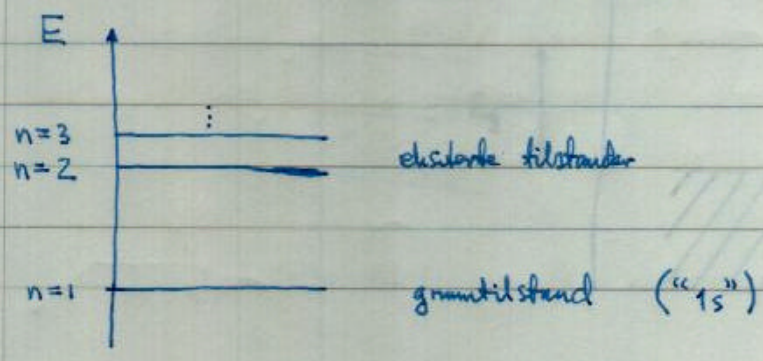 E
⋮
n=3
n=2 eksiterte tilstander
n=1 grunntilstand ("1s")